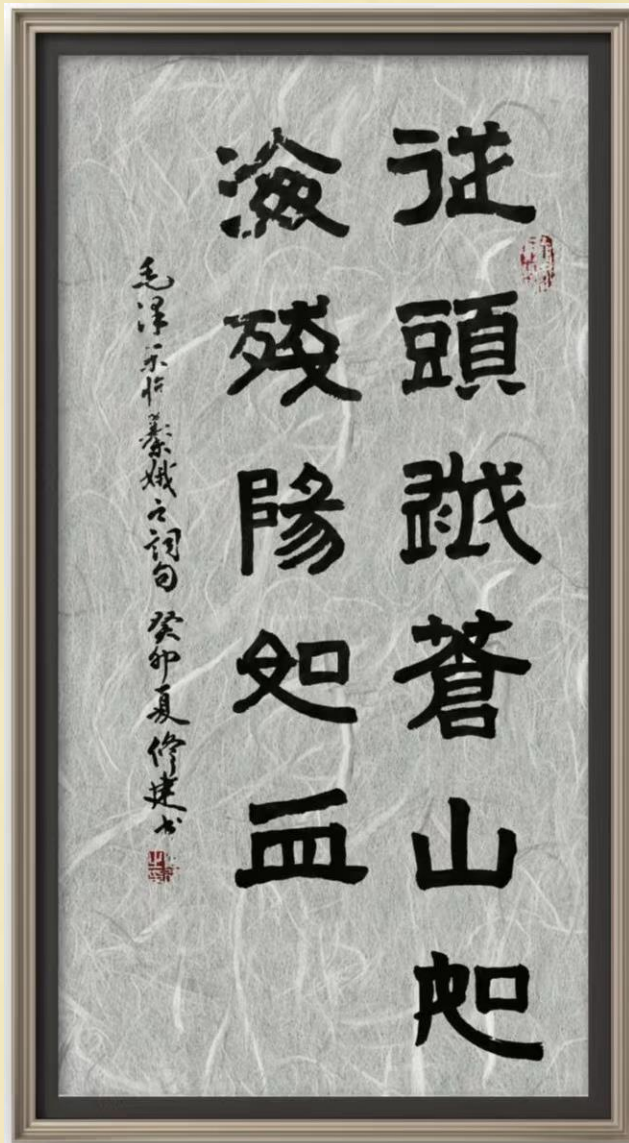 從頭越蒼山如
海殘陽如血
毛泽东忆秦娥之詞句 癸卯夏修建书